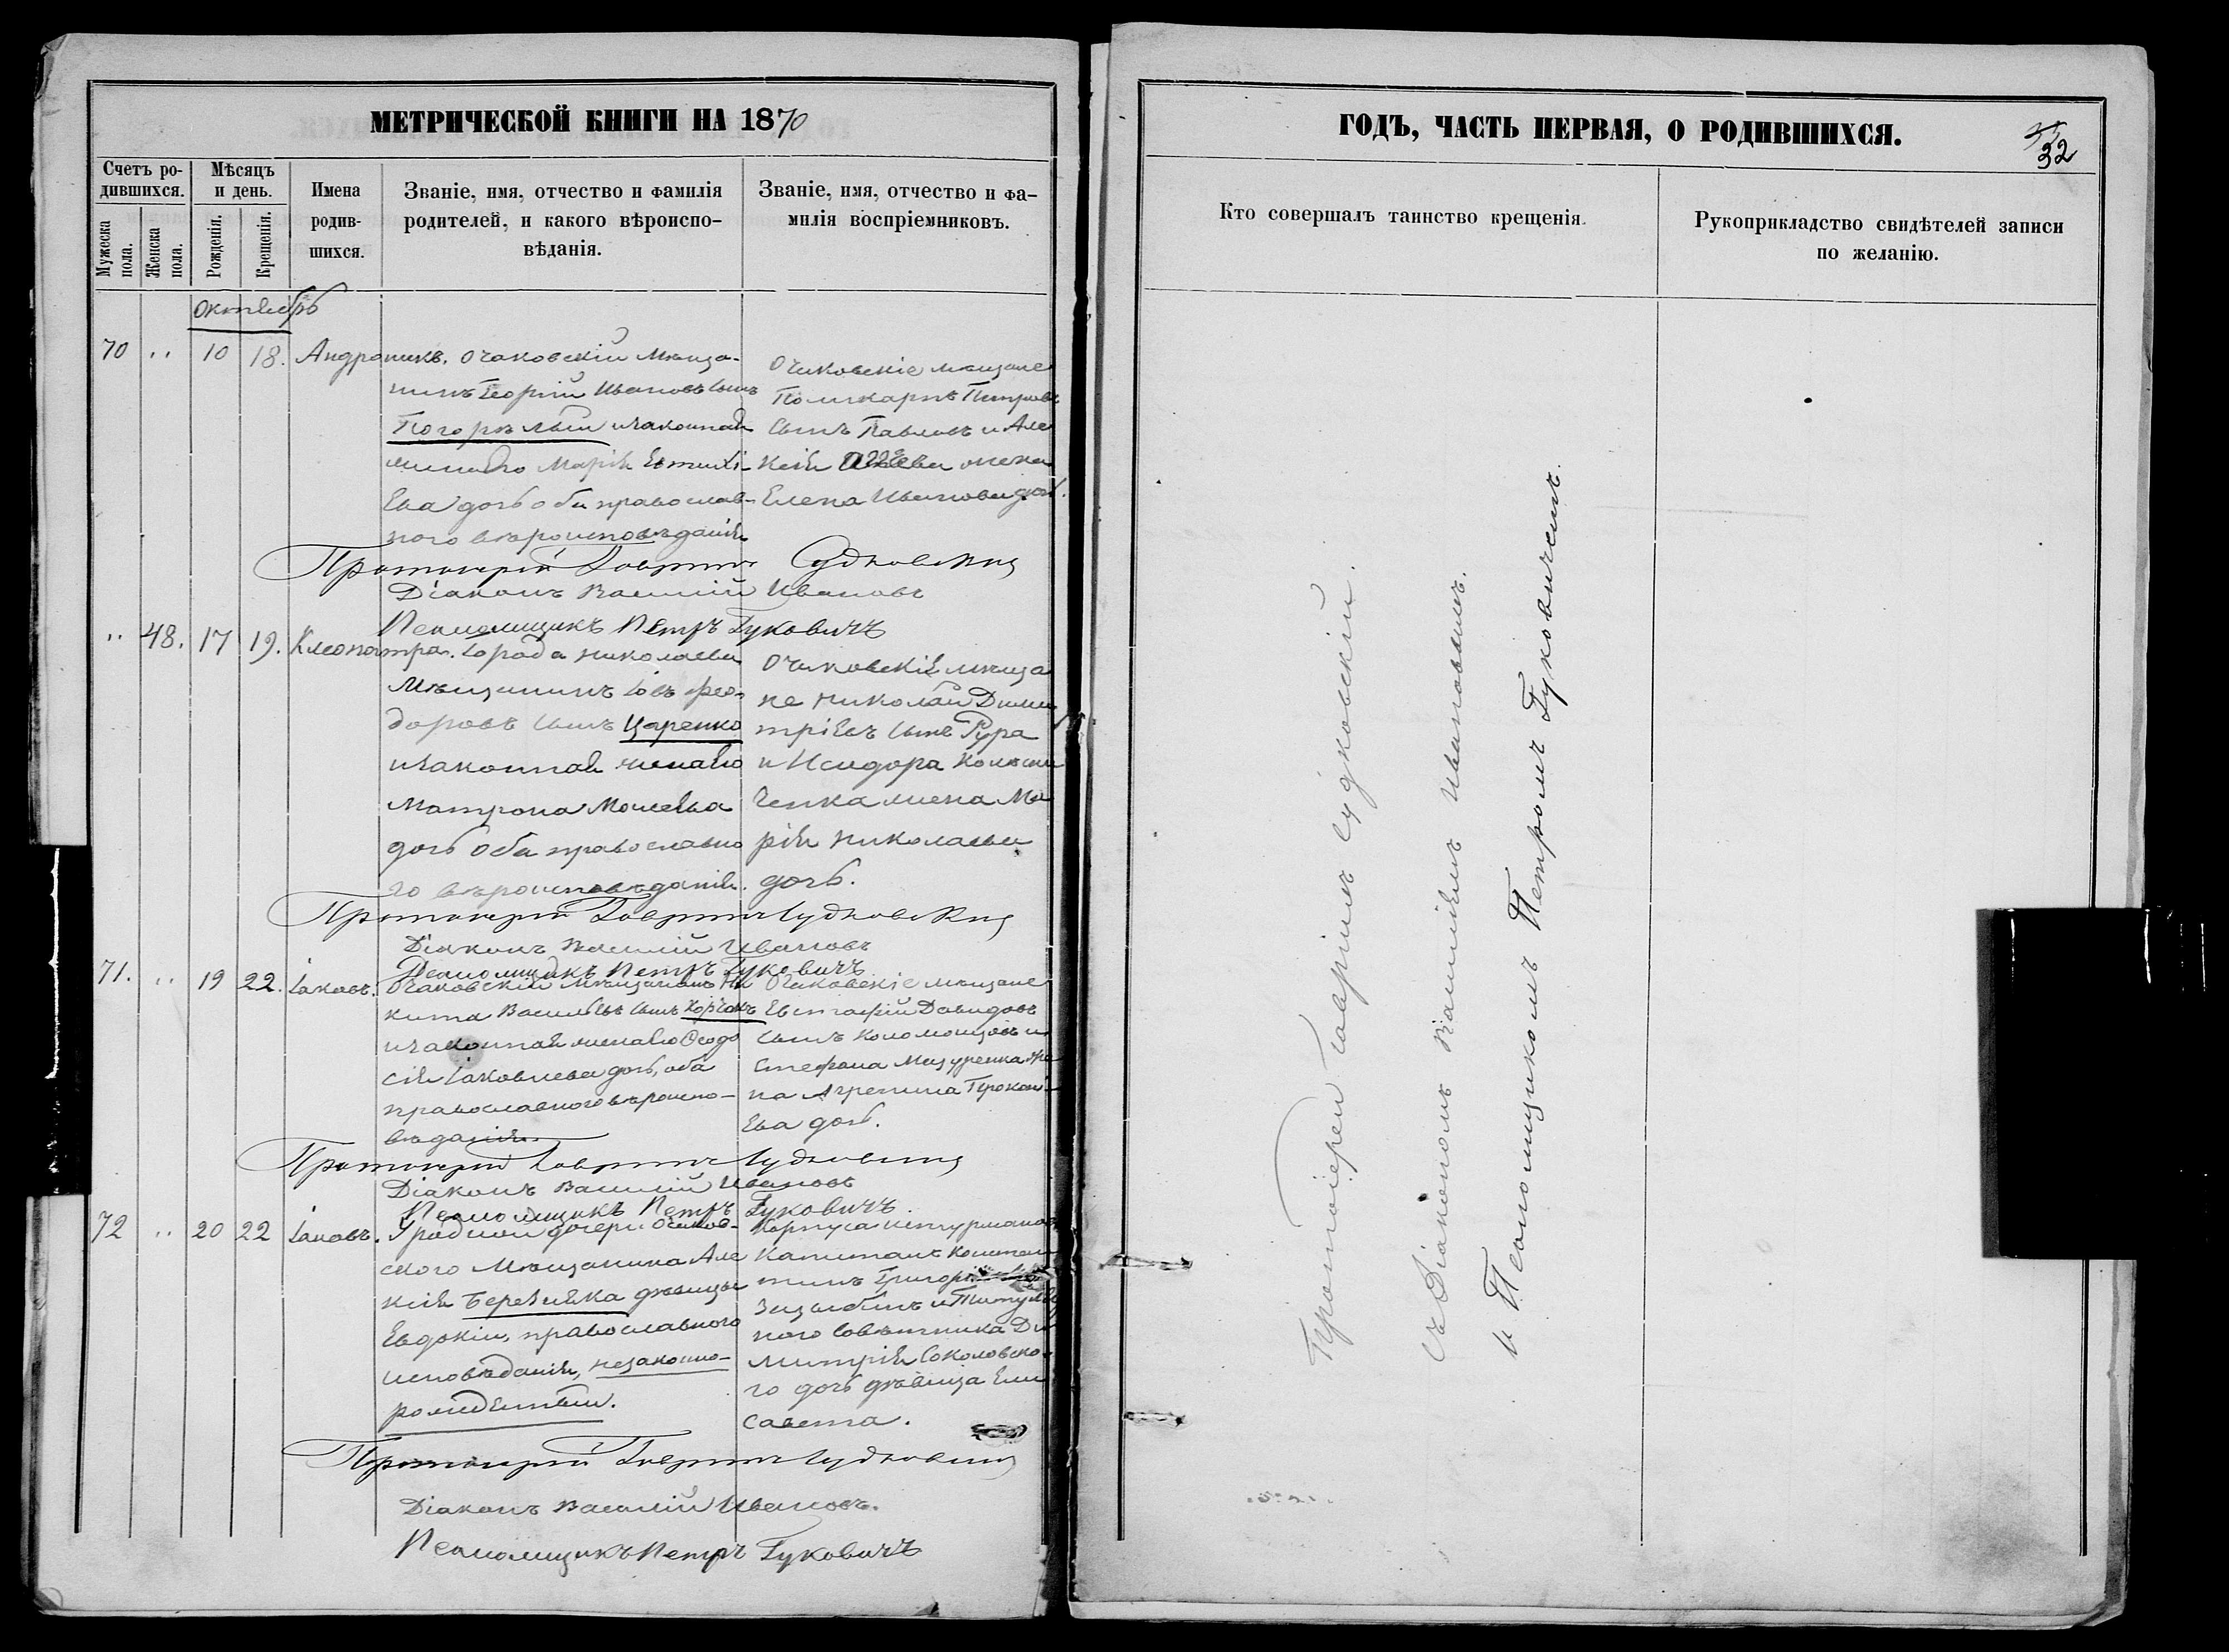 МЕТРИЧЕСКОЙ КНИГИ НА 1870
Счетъ ро-
дившихся.
Мужеска
пола.
Женска
пола.
Мѣсяцъ
и день.
Рожденія.
Крещенія.
Имена
родив-
шихся.
Званіе, имя, отчество и фамилія
родителей, и какого вѣроиспо-
вѣданія.
Званіе, имя, отчество и фа-
милія воспріемниковъ.
Октябрь
70 „ 10 18. Андроникъ.
Очаковскій Мѣща-
нинъ Георгій Ивановъ сынъ
Погорѣлый и законная
жена его Марія Евтихі-
ева дочь оба православ-
ного вѣроисповѣданія
Очаковскіе мѣщане
Поликарпъ Петровъ
сынъ Павловъ и Але
ксія жена
Елена Иванова дочь.
Протоіерей Гавріилъ Судковскій
Діаконъ Василій Ивановъ
Псаломщикъ Петръ Гуковичъ
„ 48. 17 19. Клеопатра.
Города Николаева
Мѣщанинъ Іовъ Фео-
доровъ сынъ Царенко
и законная жена его
Матрона Моисеева
дочь оба православно
го вѣроисповѣданія.
Очаковскіе мѣща
не Николай Дими
тріевъ сынъ Рура
и Исидора
ченка жена Ма
рія Николаева
дочь.
Протоіерей Гавріилъ Судковскій
Діаконъ Василій Ивановъ
Псаломщикъ Петръ Гуковичъ
71. „ 19 22. Іаковъ.
Очаковскій Мѣщанинъ Ни
кита Васильевъ сынъ Корчакъ
и законная жена его Феодо
сія Іаковлева дочь, оба
православного вѣроиспо-
вѣданія
Очаковскіе мѣщане
Евстафій Давидовъ
сынъ Коломойцовъ и
Стефана Мазуренка же
на Агрепина Прокопі-
ева дочь.
Протоіерей Гавріилъ Судковскій
Діаконъ Василій Ивановъ
Псаломщикъ Петръ Гуковичъ.
72 „ 20 22 Іаковъ.
У родной дочери Очаков-
ского Мѣщанина Але
ксія дѣвицы
Евдокіи, православного
исповѣданія, незаконно-
рожденный.
Корпуса штурмановъ
Капитанъ Констан
тинъ
и Титуляр
ного Совѣтника Ди
митрія Соколовско-
го дочь дѣвица Ели
савета.
Протоіерей Гавріилъ Судковскій
Діаконъ Василій Ивановъ.
Псаломщикъ Петръ Гуковичъ
ГОДЪ, ЧАСТЬ ПЕРВАЯ, О РОДИВШИХСЯ.
32
Кто совершалъ таинство крещенія.
Рукоприкладство свидѣтелей записи
по желанію.
Протоіерей Гавріилъ Судковскій.
съ Діакономъ Василіемъ Ивановымъ.
и Псаломщикомъ Петромъ Гуковичемъ.